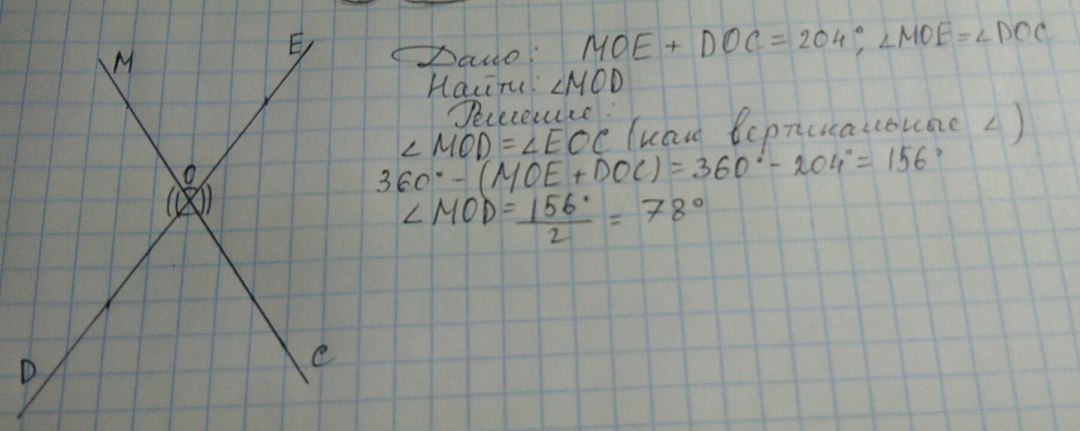 M
E
Дано: MOE + DOC = 204°; ∠MOE = ∠DOC
Найти: ∠MOD
Решение:
∠MOD = ∠EOC (как вертикальные ∠)
360° - (MOE + DOC) = 360° - 204° = 156°
∠MOD = 156° / 2 = 78°
O
D
C